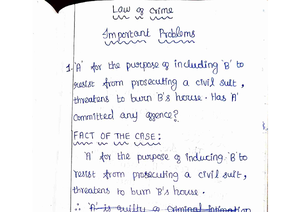 Law of crime
Important Problems
1. 'A' for the purpose of including 'B' to
resist from prosecuting a civil suit,
threatens to burn 'B's house. Has 'A'
committed any offence?
FACT OF THE CASE:
'A' for the purpose of inducing 'B' to
resist from prosecuting a civil suit,
threatens to burn 'B's house.
∴ 'A' is guilty of criminal intimation